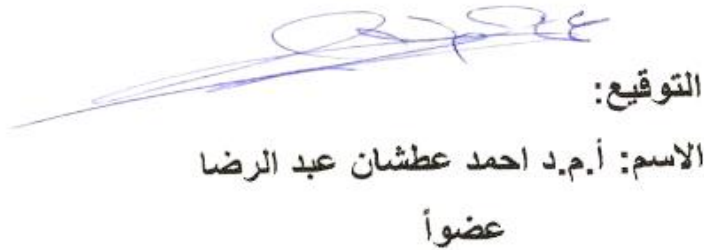 التوقيع:
الاسم: أ.م.د احمد عطشان عبد الرضا
عضواً